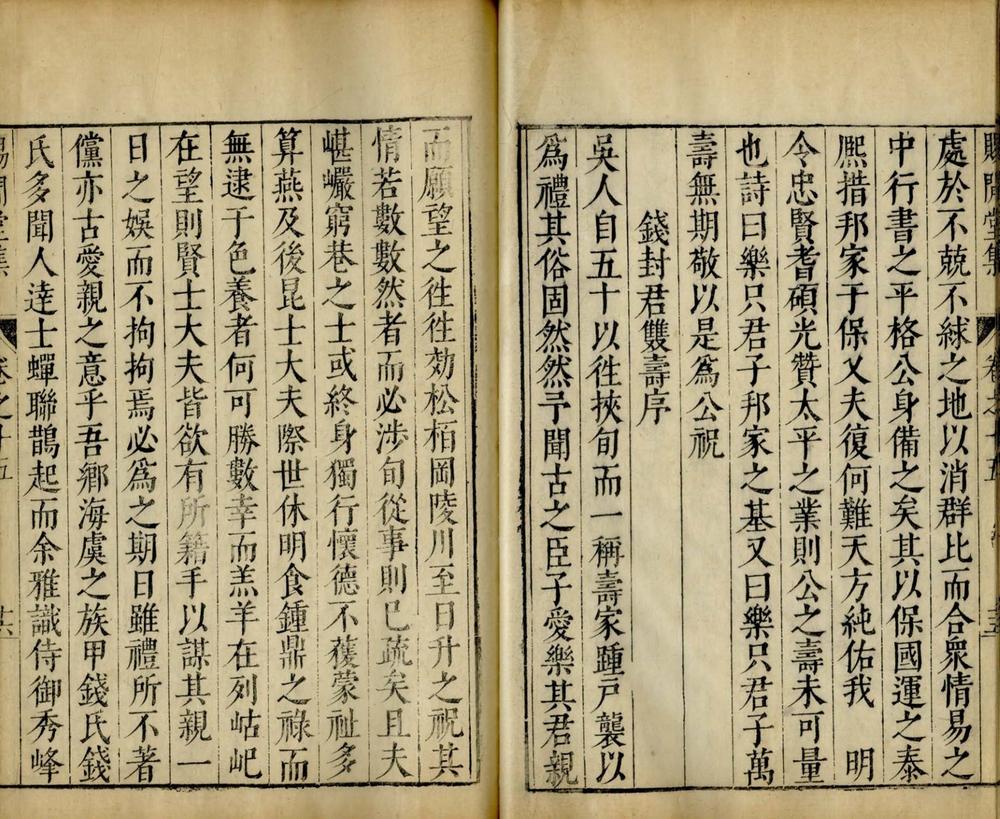 賜閒堂集 卷之十五
處於不兢不絿之地以消群比而合眾情易之
中行書之平格公身備之矣其以保國運之泰
熈措邦家于保乂夫復何難天方純佑我 明
令忠賢耆碩光贊太平之業則公之壽未可量
也詩曰樂只君子邦家之基又曰樂只君子萬
壽無期敬以是爲公祝
錢封君雙壽序
吳人自五十以徃挾旬而一稱壽家踵戸襲以
爲禮其俗固然然予聞古之臣子愛樂其君親
而願望之徃徃効松栢岡陵川至日升之祝其
情若數數然者而必涉旬從事則已疏矣且夫
嵁巖窮巷之士或終身獨行懷德不蒦蒙祉多
算燕及後昆士大夫際世休明食鍾鼎之祿而
無逮于色養者何可勝數幸而羔羊在列岵屺
在望則賢士大夫皆欲有所籍手以謀其親一
日之娛而不拘拘焉必爲之期日雖禮所不著
儻亦古愛親之意乎吾鄉海虞之族甲錢氏錢
氏多聞人達士蟬聯鵲起而余雅識侍御秀峰
賜閒堂集 卷之十五 廿六